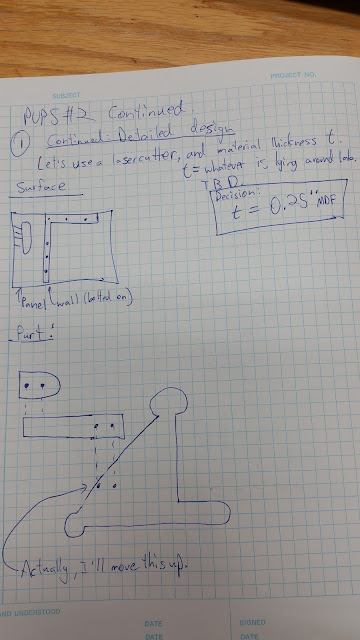 SUBJECT
PROJECT NO.
PUPS #2 Continued
① Continued: Detailed design
Let's use a lasercutter, and material thickness t.
t = whatever is lying around lab.
T.B.D.
Surface
Decision:
t = 0.25" MDF
Panel wall (bolted on)
Part:
Actually, I'll move this up.
AND UNDERSTOOD
DATE
SIGNED
DATE
DATE